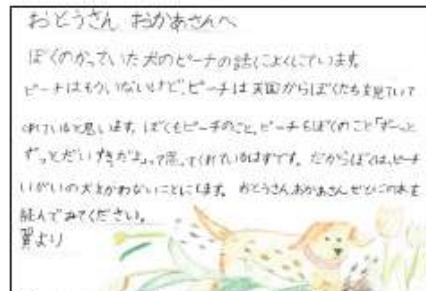 おとうさん おかあさんへ
ぼくのかっていた犬のピーチの話によくにています。
ピーチはもういないけど、ピーチは天国からぼくたちを見ていて
くれていると思います。ぼくもピーチのこと、ピーチもぼくのこと「ずーっと
ずっとだいすきだよ」って思ってくれているはずです。だからぼくは、ピーチ
いがいの犬をかわないことにします。おとうさんおかあさんぜひこの本を
読んでみてください。
翼より